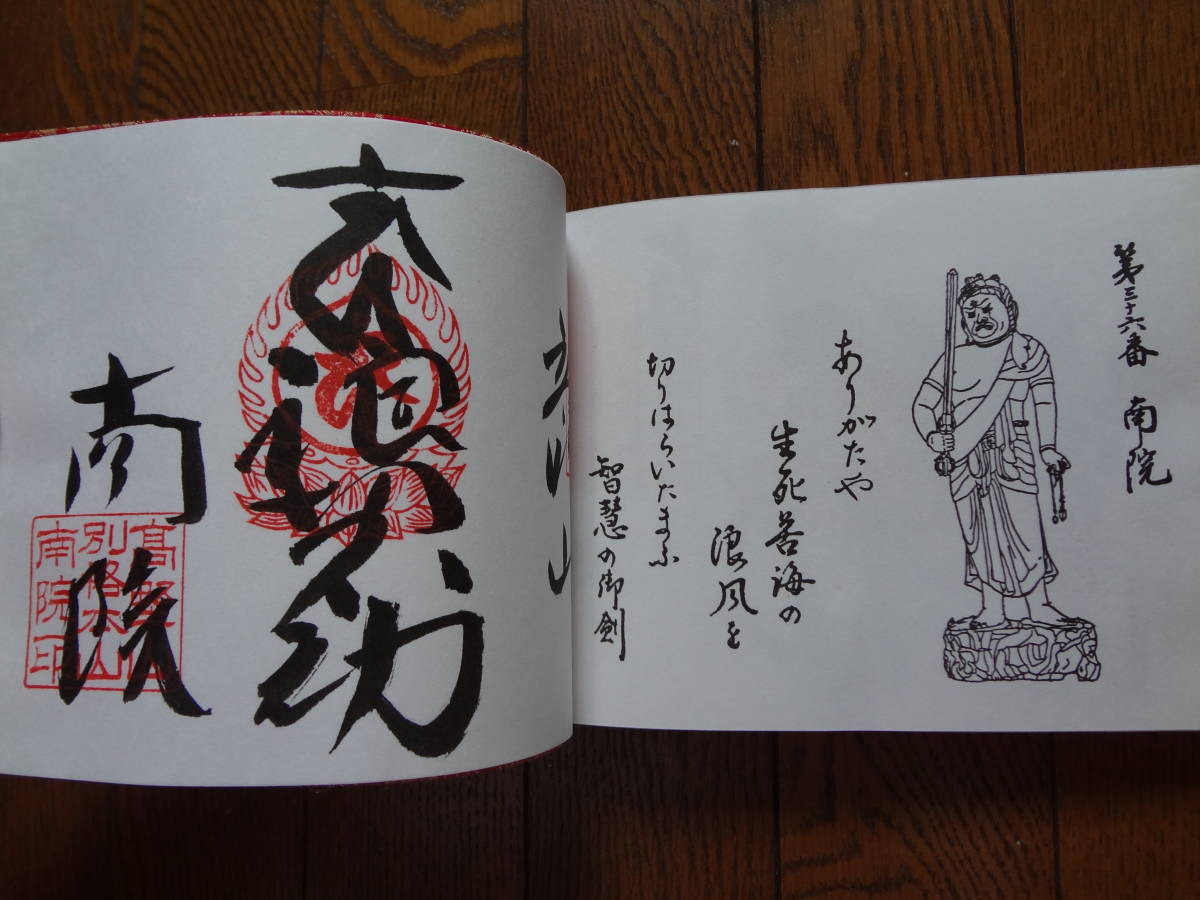 第三十六番 南院
ありがたや
生死苦海の
浪風を
切りはらいたまふ
智慧の御剣
南院
高野山
別格本山
南院印